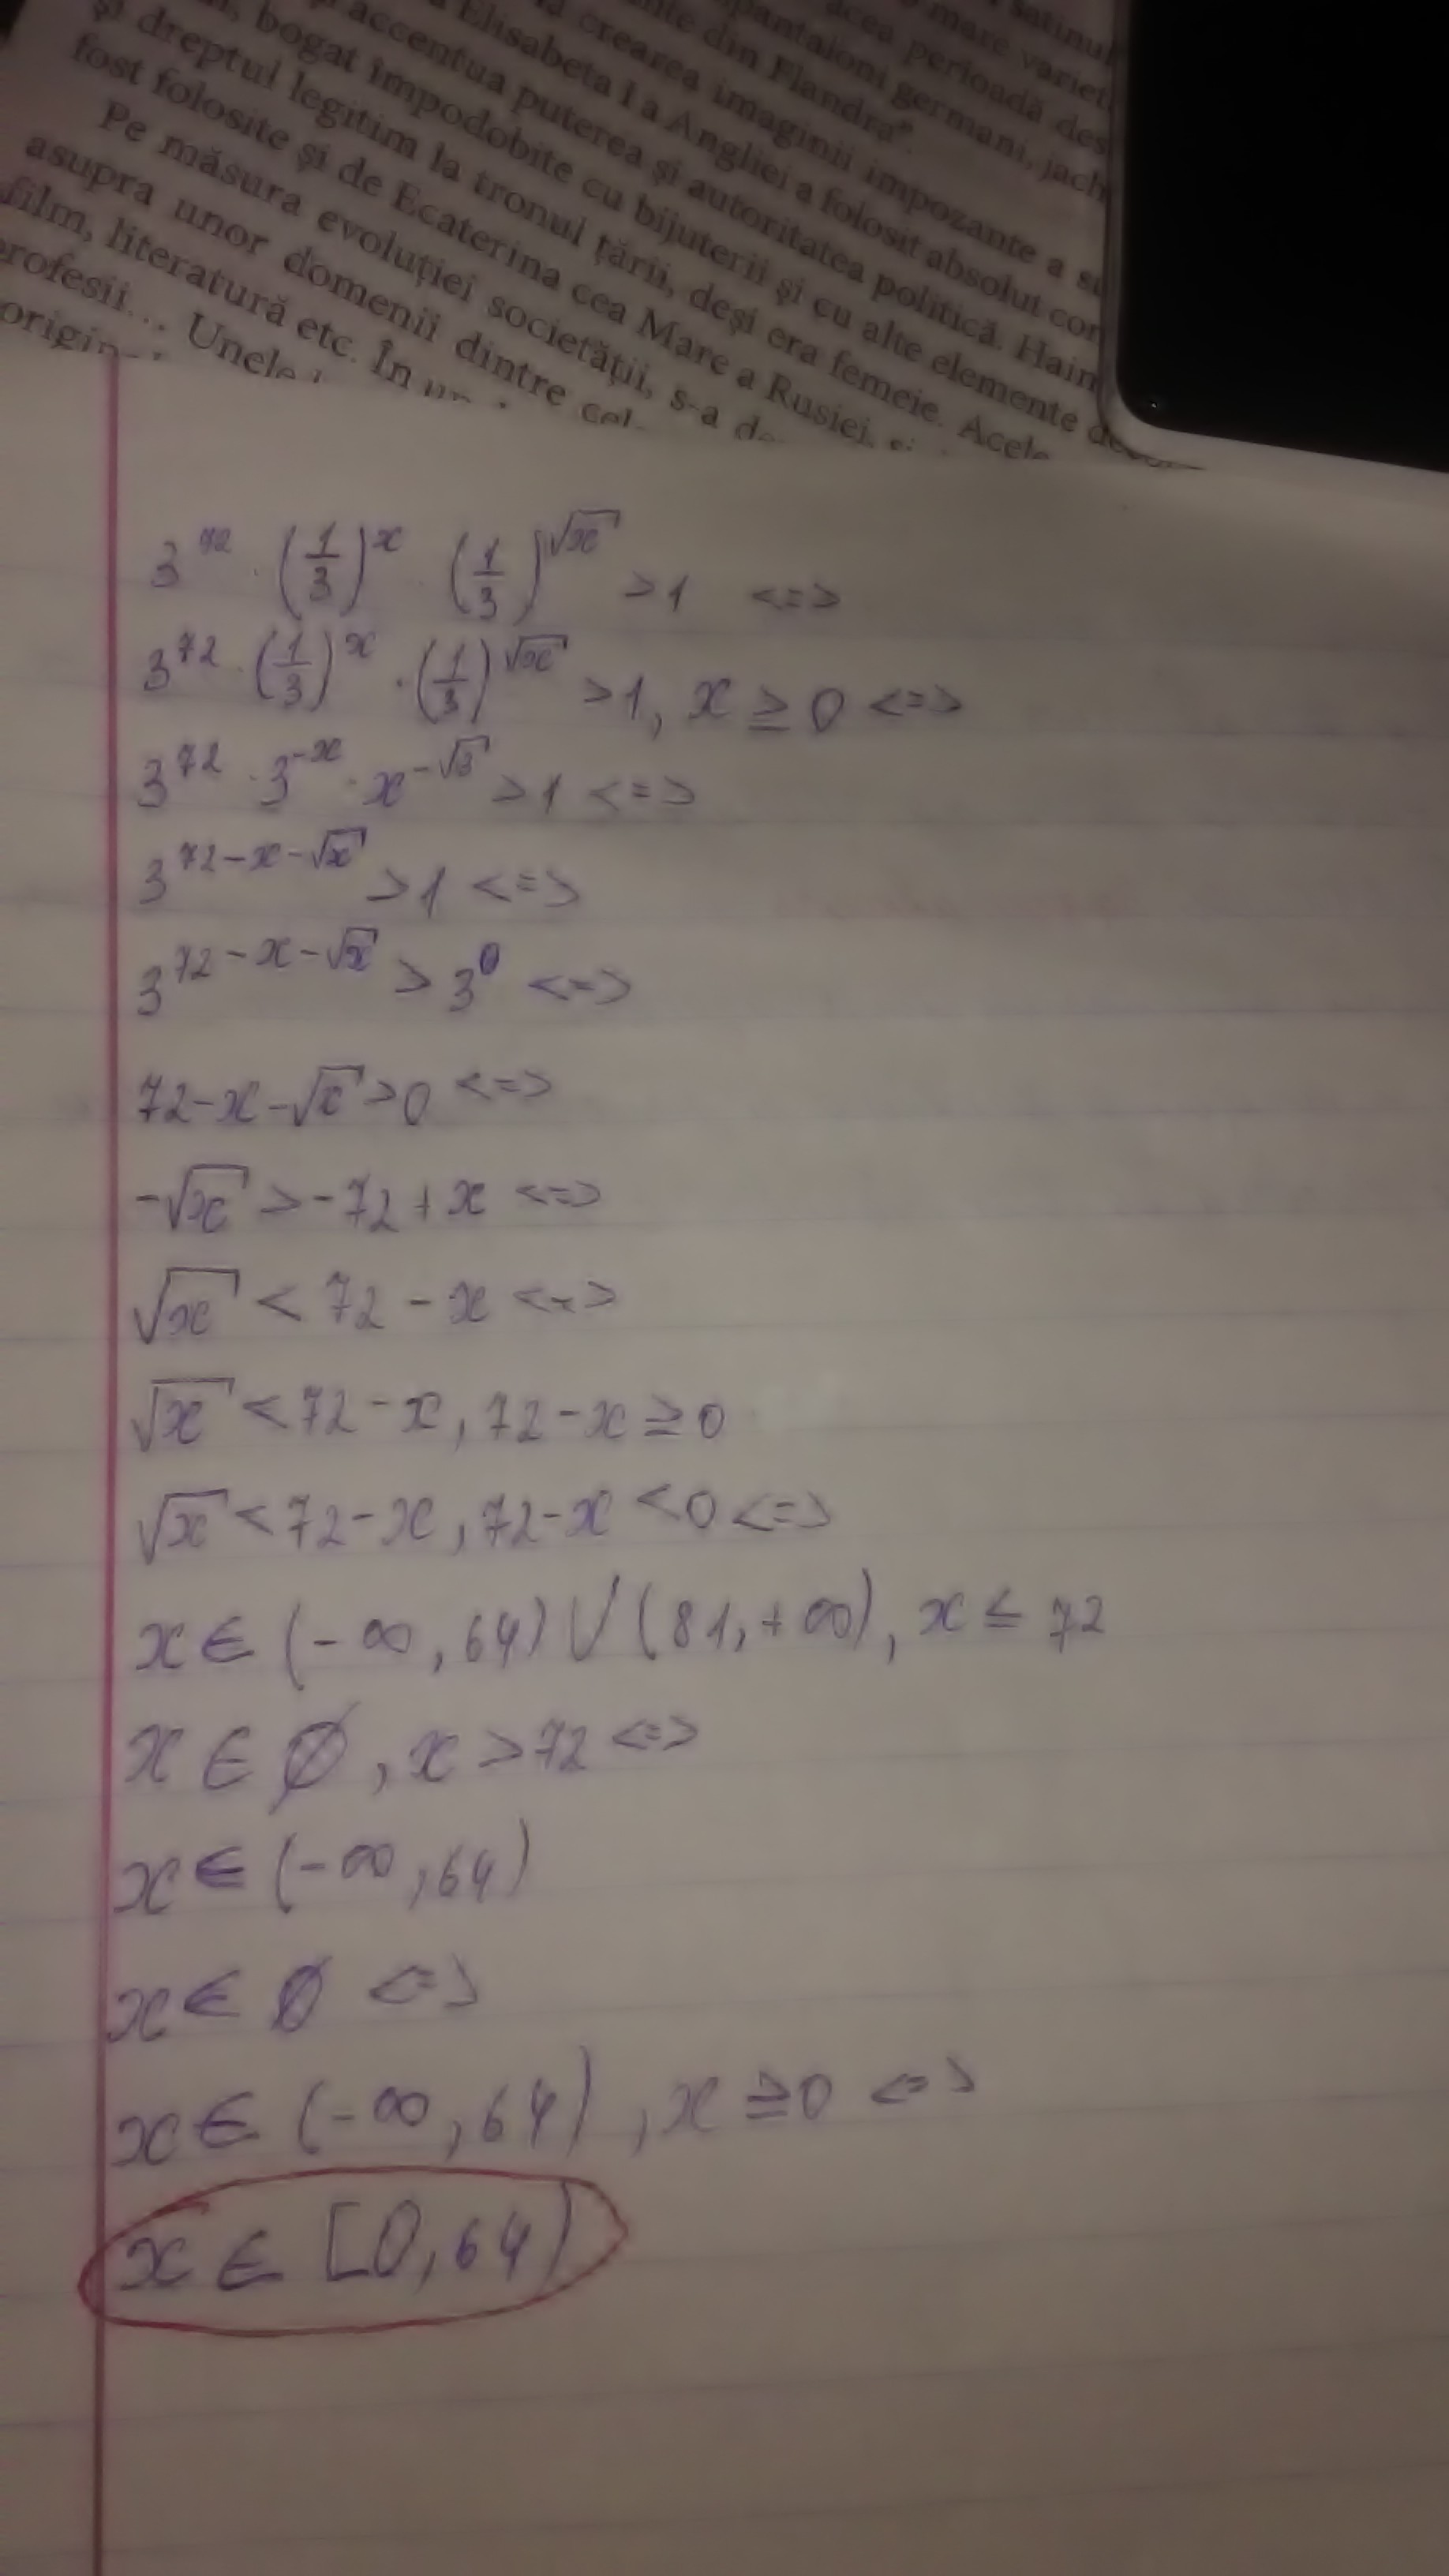 satinul
o mare varieta
acea perioadă des
pantaloni germani, jach
nte din Flandra".
crearea imaginii impozante a su
Elisabeta I a Angliei a folosit absolut con
accentua puterea și autoritatea politică. Hain
bogat împodobite cu bijuterii și cu alte elemente de
și dreptul legitim la tronul țării, deși era femeie. Acele
fost folosite și de Ecaterina cea Mare a Rusiei, și
Pe măsura evoluției societății, s-a de
asupra unor domenii dintre cel
film, literatură etc. În un
profesii... Unele
origin
3^72 · (1/3)^x · (1/3)^√x > 1 <=>
3^72 · (1/3)^x · (1/3)^√x > 1, x ≥ 0 <=>
3^72 · 3^-x · x^-√3 > 1 <=>
3^72-x-√x > 1 <=>
3^72-x-√x > 3^0 <=>
72-x-√x > 0 <=>
-√x > -72 + x <=>
√x < 72 - x <=>
√x < 72 - x, 72 - x ≥ 0
√x < 72 - x, 72 - x < 0 <=>
x ∈ (-∞, 64) ∪ (81, +∞), x ≤ 72
x ∈ ∅, x > 72 <=>
x ∈ (-∞, 64)
x ∈ ∅ <=>
x ∈ (-∞, 64), x ≥ 0 <=>
x ∈ [0, 64)